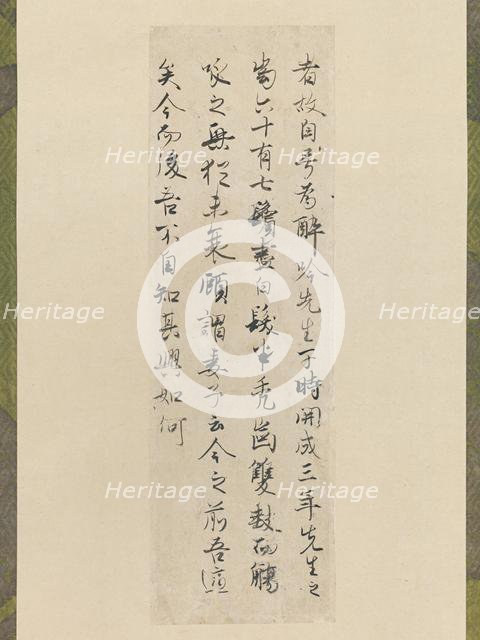 者故自号為醉吟先生于時開成三年先生之
齒六十有七鬢盡白髮半禿齒雙缺而觴
詠之興猶未衰顧謂妻子云今之前吾適
矣今而後吾不自知其興如何
Heritage Heritage Heritage
Heritage © Heritage
Heritage Heritage Heritage